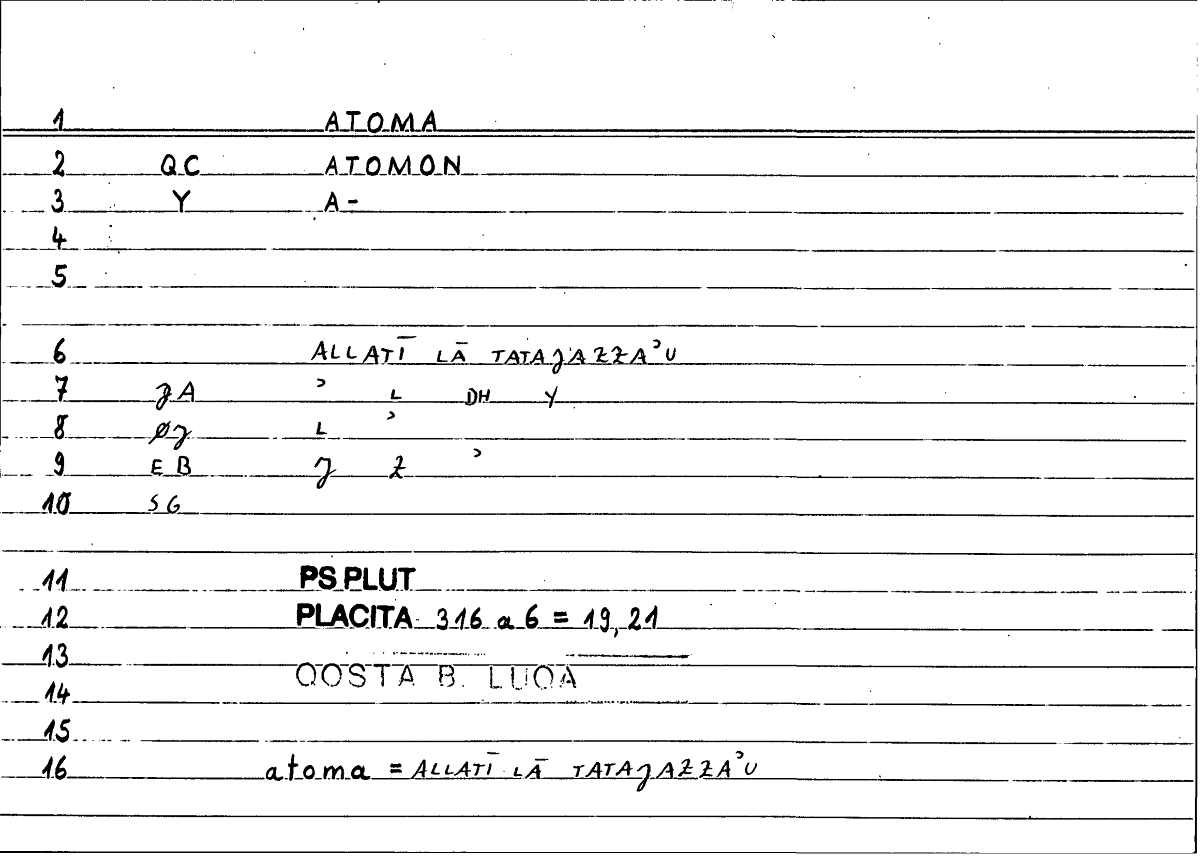 1 ATOMA
2 QC ATOMON
3 Y A-
4
5
6 ALLATĪ LĀ TATAȷAZZAʾU
7 ȷA ʾ L DH Y
8 Øȷ L ʾ
9 EB ȷ Z ʾ
10 SG
11 PS PLUT
12 PLACITA 316 a 6 = 19, 21
13
QOSTA B. LUQA
14
15
16 atoma = ALLATĪ LĀ TATAȷAZZAʾU